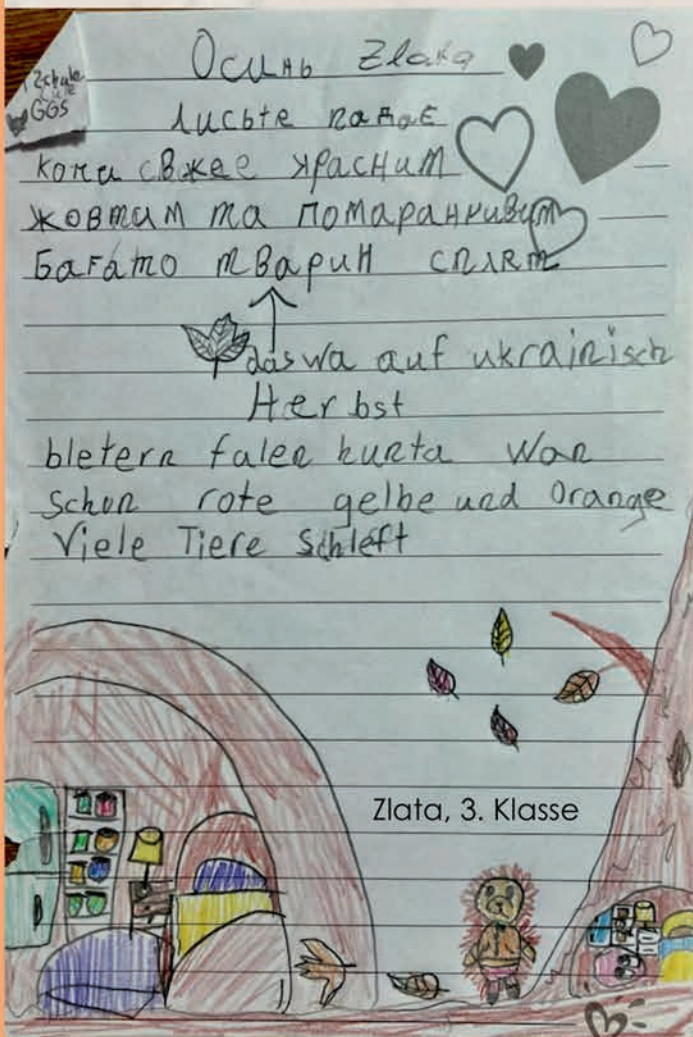 Осинь Zlata
2schule
GGS
листе падає
жовтим та помаранчивим
Багато тварин сплят
das wa auf ukrainisch
Herbst
bletern falen kunta wan
schon rote gelbe und Orange
Viele Tiere Schleft
Zlata, 3. Klasse